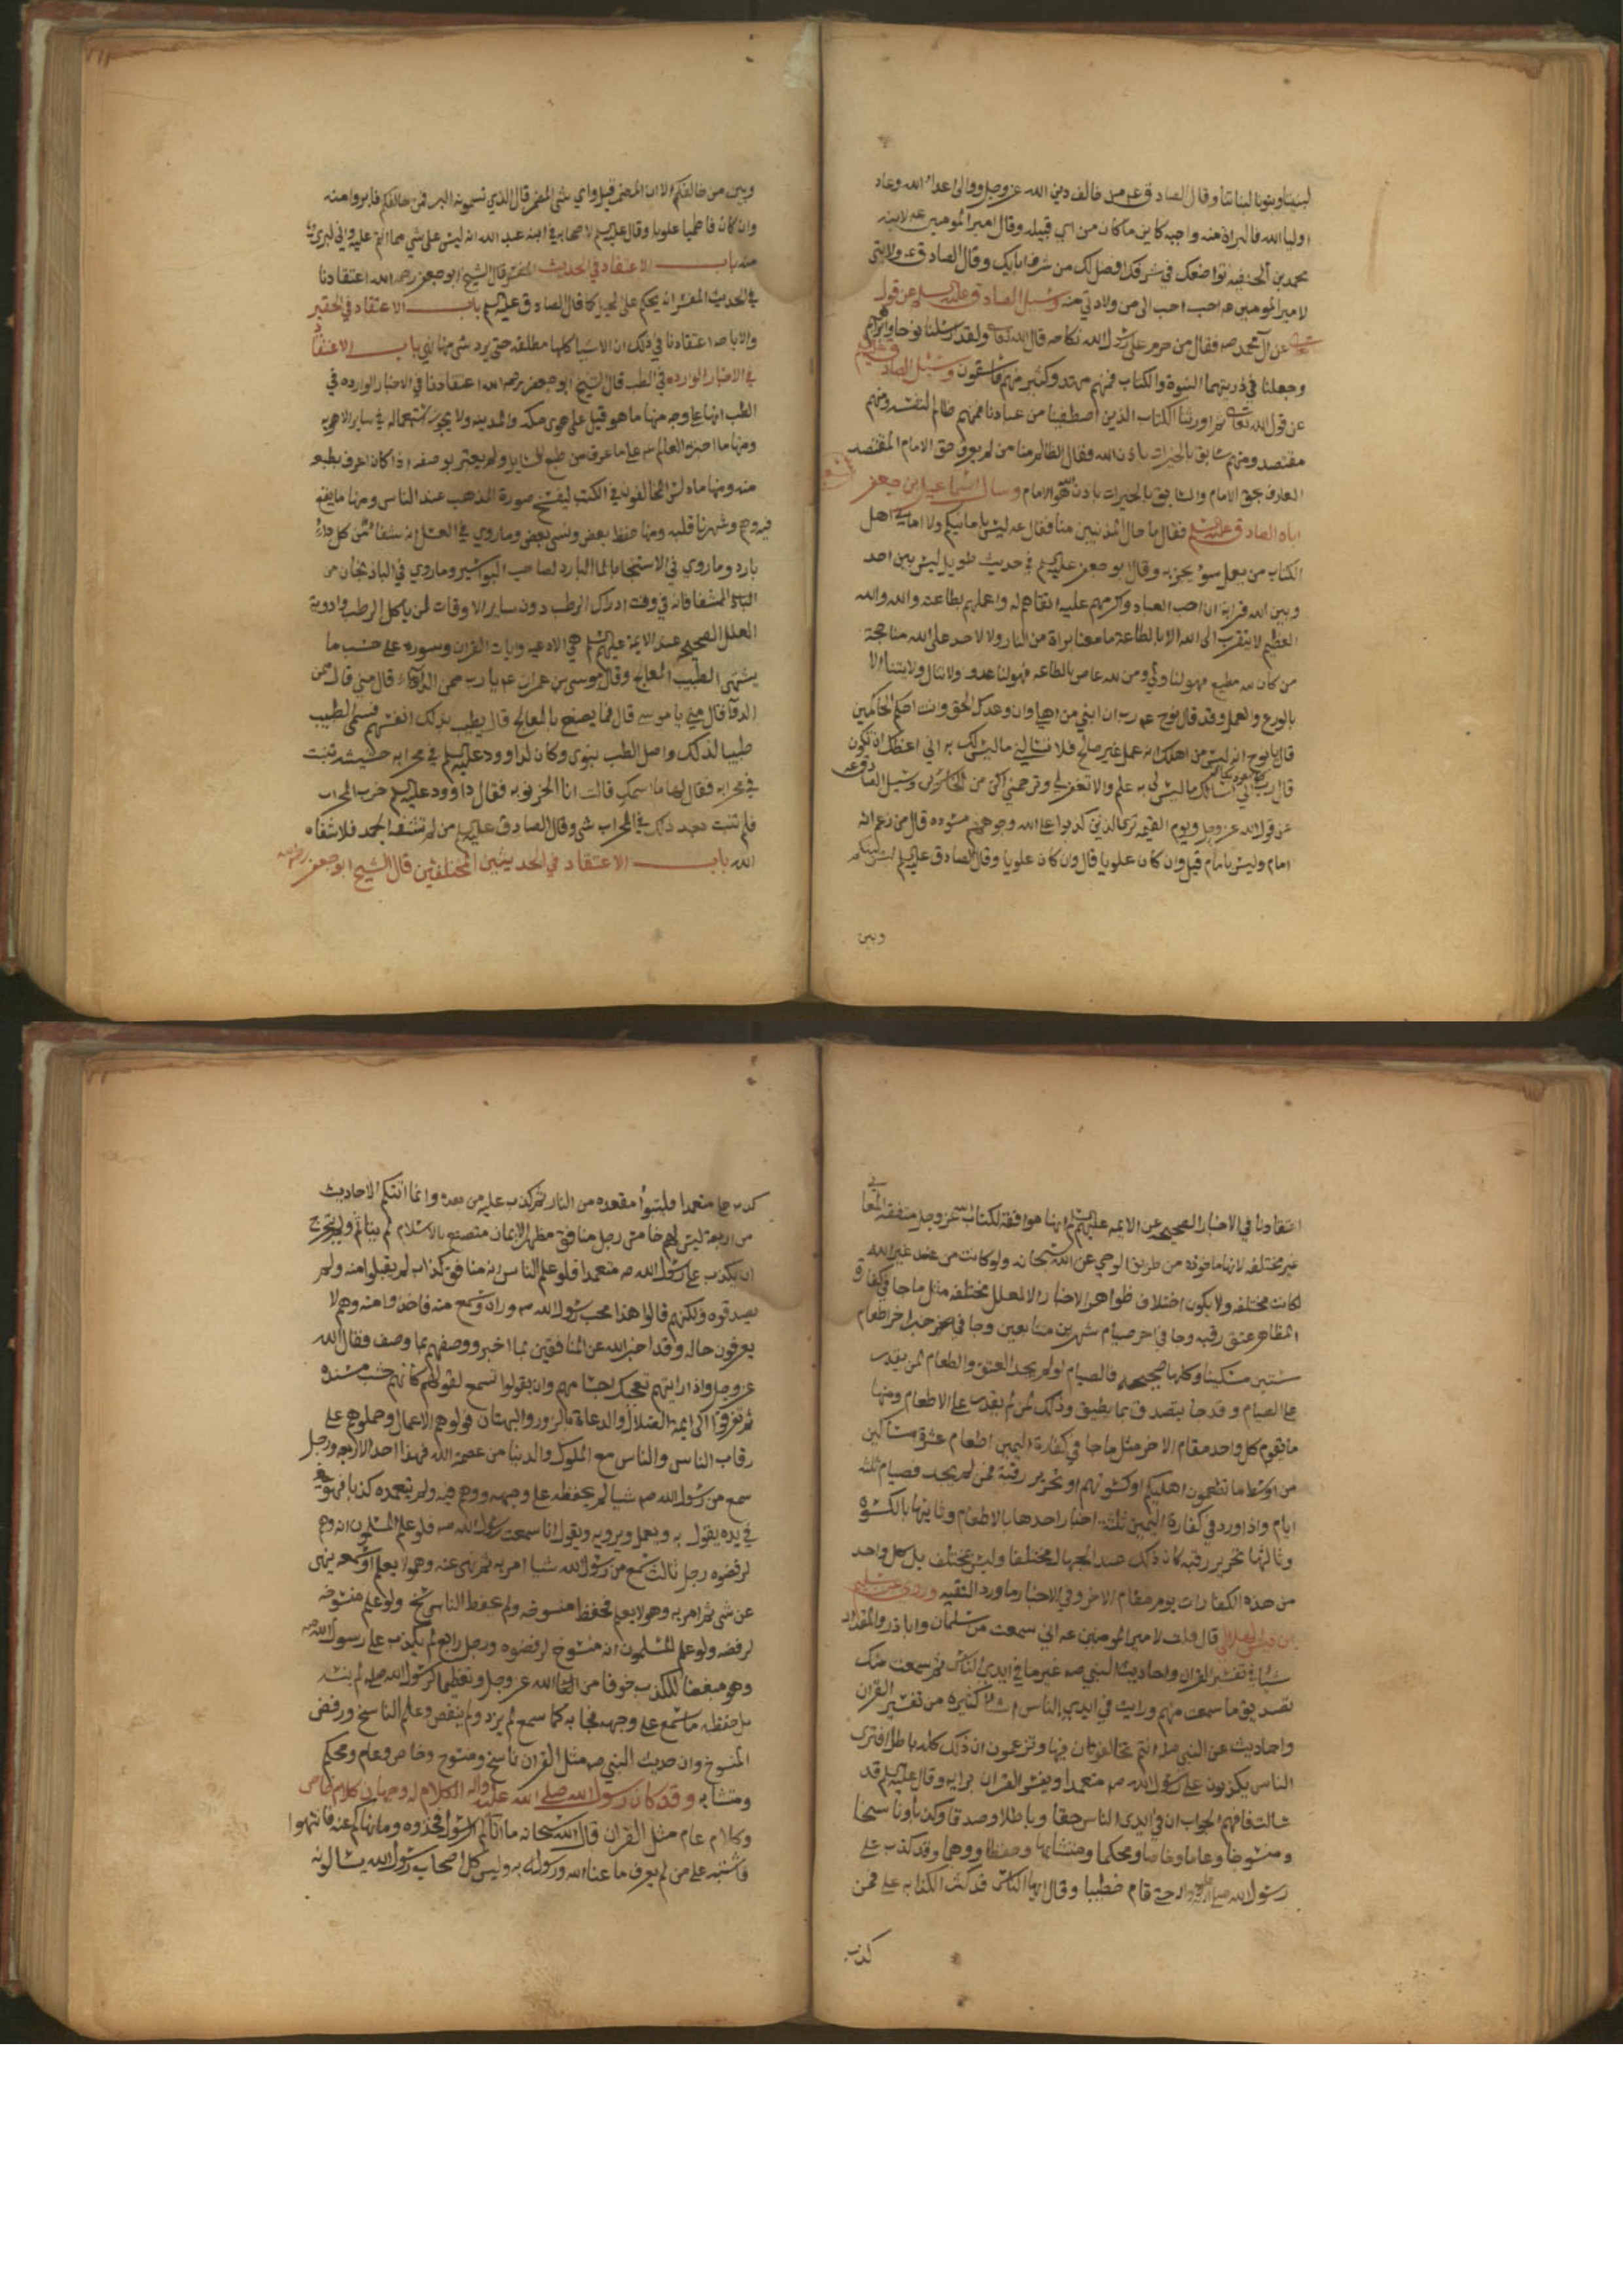 لبنينا وبنونا لبناتنا وقال الصادق عه من خالف دين الله عز وجل ووالى اعداء الله وعاد
اوليا الله فالبراة منه واجبه كاين ما كان من اي قبيله وقال امير المومنين عه لابنه
محمد بن الحنفيه تواضعك في شرفك افضل لك من شرف ابايك وقال الصادق عه ولايتي
لامير المومنين عه احب الى من ولادتي منه وسئل الصادق عليه السلم عن قول
عن آل محمد صه فقال من حرم على رسول الله نكاحه قال الله تعا ولقد ارسلنا نوحا وابراهيم
وجعلنا في ذريتهما النبوة والكتاب فمنهم مهتد وكثير منهم فاسقون وسئل الصادق
عن قول الله تعا ثم اورثنا الكتاب الذين اصطفينا من عبادنا فمنهم ظالم لنفسه ومنهم
مقتصد ومنهم سابق بالخيرات باذن الله فقال الظالم منا من لم يعرف حق الامام المقتصد
العارف بحق الامام والسابق بالخيرات باذن الله هو الامام وسال اسماعيل بن جعفر
اباه الصادق عليه السلم فقال ما حال المذنبين منا فقال عه ليس بامانيكم ولا اماني اهل
الكتاب من يعمل سؤ يجز به وقال ابو جعفر عليه السلم في حديث طويل ليس بين احد
وبين الله قرابة ان احب العباد واكرمهم عليه اتقاهم له واعملهم بطاعته والله والله
العظيم لا يتقرب الى الله الا بالطاعة ما معنا براة من النار ولا لاحد على الله من حجة
من كان لله مطيع فهو لنا ولي ومن لله عاص بالطاعه فهو لنا عدو ولا تنال ولايتنا الا
بالورع والعمل وقد قال نوح عه رب ان ابني من اهلي وان وعدك الحق وانت احكم الحاكمين
قال يا نوح انه ليس من اهلك انه عمل غير صالح فلا تسالني ما ليس لك به اني اعظك ان تكون
قال رب اني اسالك ما ليس لي به علم والا تغفر لي وترحمني اكن من الخاسرين وسئل الصادق عه
عن قول الله عز وجل ويوم القيمه ترى الذين كذبوا على الله وجوههم مسوده قال من زعم انه
امام وليس بامام قيل وان كان علويا قال وان كان علويا وقال الصادق عليه السلم ليس بينكم
وبين
وبين من خالفكم الا ان المضمر قيل واي شي المضمر قال الذي تسمونه البر فمن خالفكم فابروا منه
وان كان فاطميا علويا وقال عليه السلم لاصحابه في ابنه عبد الله انه ليس على شي مما انتم عليه واني لبريء
منه باب الاعتقاد في الحديث المفسر قال الشيخ ابو جعفر رحمه الله اعتقادنا
في الحديث المفسر انه يحكم على المجمل كما قال الصادق عليه السلم باب الاعتقاد في الحقير
والاباحه اعتقادنا في ذلك ان الاشيا كلها مطلقه حتى يرد شي منها نهي باب الاعتقاد
في الاخبار الوارده في الطب قال الشيخ ابو جعفر رحمه الله اعتقادنا في الاخبار الوارده في
الطب انها على وجه منها ما هو قيل على هوى مكه والمدينه ولا يجوز استعماله في ساير الاهويه
ومنها ما اخبر به العالم عه على ما عرف من طبع السايل ولم يعتبر بوصفه اذا كان اعرف بطبعه
منه ومنها ما دلس المخالفون في الكتب ليقبح صورة المذهب عند الناس ومنها ما يقع
فيه وهم وشهرنا قلبه ومنها حفظ بعض ونسي بعض وما روي في العسل انه شفا من كل داء
بارد وما روي في الاستنجا بالما البارد لصاحب البواسير وما روي في الباذنجان من
الشفا فانه في وقت ادراك الرطب دون ساير الاوقات لمن ياكل الرطب وادوية
العلل الصحيحه عند الايمة عليهم السلم هي الادعيه وايات القران وسوره على حسب ما
يشتهى الطبيب المعالج وقال موسى بن عمران عه يا رب ممن الداء قال مني قال ممن
الدوآ قال مني يا موسى قال فما يصنع بالمعالج قال يطيب بذلك انفسهم فسمى الطبيب
طبيبا لذلك واصل الطب نبوى وكان لداوود عليه السلم في محرابه حشيشه تنبت
في محرابه فقال لها ما اسمك قالت انا الخرنوبه فقال داوود عليه السلم خرب المحراب
فلم تنبت بعد ذلك في المحراب شي وقال الصادق عليه السلم من لم تشفه الحمد فلا شفاه
الله باب الاعتقاد في الحديثين المختلفين قال الشيخ ابو جعفر رحمه الله
اعتقادنا في الاخبار الصحيحه عن الايمه عليهم السلم انها موافقة لكتاب الله عز وجل متفقه المعاني
غير مختلفه لانها ماخوذه من طريق الوحي عن الله سبحانه ولو كانت من عند غير الله
لكانت مختلفه ولا يكون اختلاف ظواهر الاخبار الا لعلل مختلفه مثل ما جا في كفارة
الظاهر عتق رقبه وجا في اخر صيام شهرين متتابعين وجا في خبر اخر اطعام
ستين مسكينا وكلها صحيحه فالصيام لو لم يجد العتق والطعام لمن يقدر
على الصيام وقد جا يتصدق بما يطيق وذلك لمن لم يقدر على الاطعام ومنها
ما يقوم كل واحد مقام الاخر مثل ما جا في كفارة اليمين اطعام عشرة مساكين
من اوسط ما تطعمون اهليكم او كسوتهم او تحرير رقبة فمن لم يجد فصيام ثلثه
ايام واذا ورد في كفارة اليمين ثلثه اخبار احدها بالاطعام وثانيها بالكسوه
وثالثها تحرير رقبه كان ذلك عند الجهال مختلفا وليس بمختلف بل كل واحد
من هذه الكفارات يوم مقام الاخر وفي الاخبار ما ورد للتقيه وروى عن سليم
بن قيس الهلالي قال قلت لامير المومنين عه اني سمعت من سلمان واباذر والمقداد
شيا في تفسير القران واحاديث النبي صه غير ما في ايدي الناس ثم سمعت منك
تصديق ما سمعت منهم ورايت في ايدي الناس اشيا كثيره من تفسير القران
واحاديث عن النبي صه انتم تخالفونهم فيها وتزعمون ان ذلك كله باطل افترى
الناس يكذبون على رسول الله صه متعمدا ويفسرو القران برايه وقال عليه السلم قد
سالت فافهم الجواب ان في ايدى الناس حقا وباطلا وصدقا وكذبا وناسخا
ومنسوخا وعاما وخاصا ومحكما ومتشابها وحفظا ووهما وقد كذب على
رسول الله صلى الله عليه واله حتى قام خطيبا وقال ايها الناس قد كثر الكذابه علي فمن
كذب
كذب علي متعمدا فليتبوأ مقعده من النار ثم كذب عليه من بعده وانما اتتكم الاحاديث
من اربعة ليس لهم خامس رجل منافق مظهر الايمان متصنع بالاسلام لم يتاثم ولم يتحرج
ان يكذب على رسول الله صه متعمدا فلو علم الناس انه منافق كذاب لم يقبلوا منه ولم
يصدقوه ولكنهم قالوا هذا صحب رسول الله صه وراه وسمع منه فاخذوا منه وهم لا
يعرفون حاله وقد اخبر الله عن المنافقين بما اخبر ووصفهم بما وصف فقال الله
عز وجل واذا رايتهم تعجبك اجسامهم وان يقولوا تسمع لقولهم كانهم خشب مسنده
ثم تفرقوا الى ايمة الضلال والدعاة بالزور والبهتان فولوهم الاعمال وحملوهم على
رقاب الناس والناس مع الملوك والدنيا من عصم الله فهذا احد الاربعه ورجل
سمع من رسول الله صه شيا لم يحفظه على وجهه ووهم فيه ولم يتعمده كذبا فهو
في يده يقول به ويعمل ويرويه ويقول انا سمعت رسول الله صه فلو علم المسلمون انه وهم
لرفضوه رجل ثالث سمع من رسول الله شيا امر به ثم نهى عنه وهو لا يعلم او سمعه ينهى
عن شى ثم امر به وهو لا يعلم فحفظ منسوخه ولم يحفظ الناسخ ولو علم منسوخه
لرفضه ولو علم المسلمون انه منسوخ لرفضوه ورجل رابع لم يكذب على رسول الله صه
وهو مبغضا للكذب خوفا من الله عز وجل وتعظيما لرسول الله صه لم ينسه
بل حفظه ما سمع على وجهه فجا به كما سمع لم يزد ولم ينقص وعلم الناسخ ورفض
المنسوخ وان حديث النبي صه مثل القران ناسخ ومنسوخ وخاص وعام ومحكم
ومتشابه وقد كان رسول الله صلى الله عليه واله الكلام له وجهان كلام خاص
وكلام عام مثل القران قال الله سبحانه ما اتاكم الرسول فخذوه وما نهاكم عنه فانتهوا
فاشتبه على من لم يعرف ما عنا الله ورسوله به وليس كل اصحاب رسول الله يسالونه